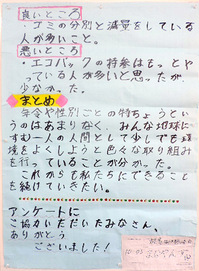 良いところ
・ゴミの分別と減量をしている
人が多いこと。
悪いところ
・エコバックの持参はもっとや
っている人が多いと思ったが、
少なかった。
まとめ
年令や性別ごとの特ちょうとい
うのはあまりなく、みんな地球に
すむ一人の人間として少しでも環
境をよくしようと色々な取り組み
を行っていることが分かった。
これからも私たちにできること
を続けていきたい。
アンケートに
ご協力いただいたみなさん、
ありがとう
ございました!